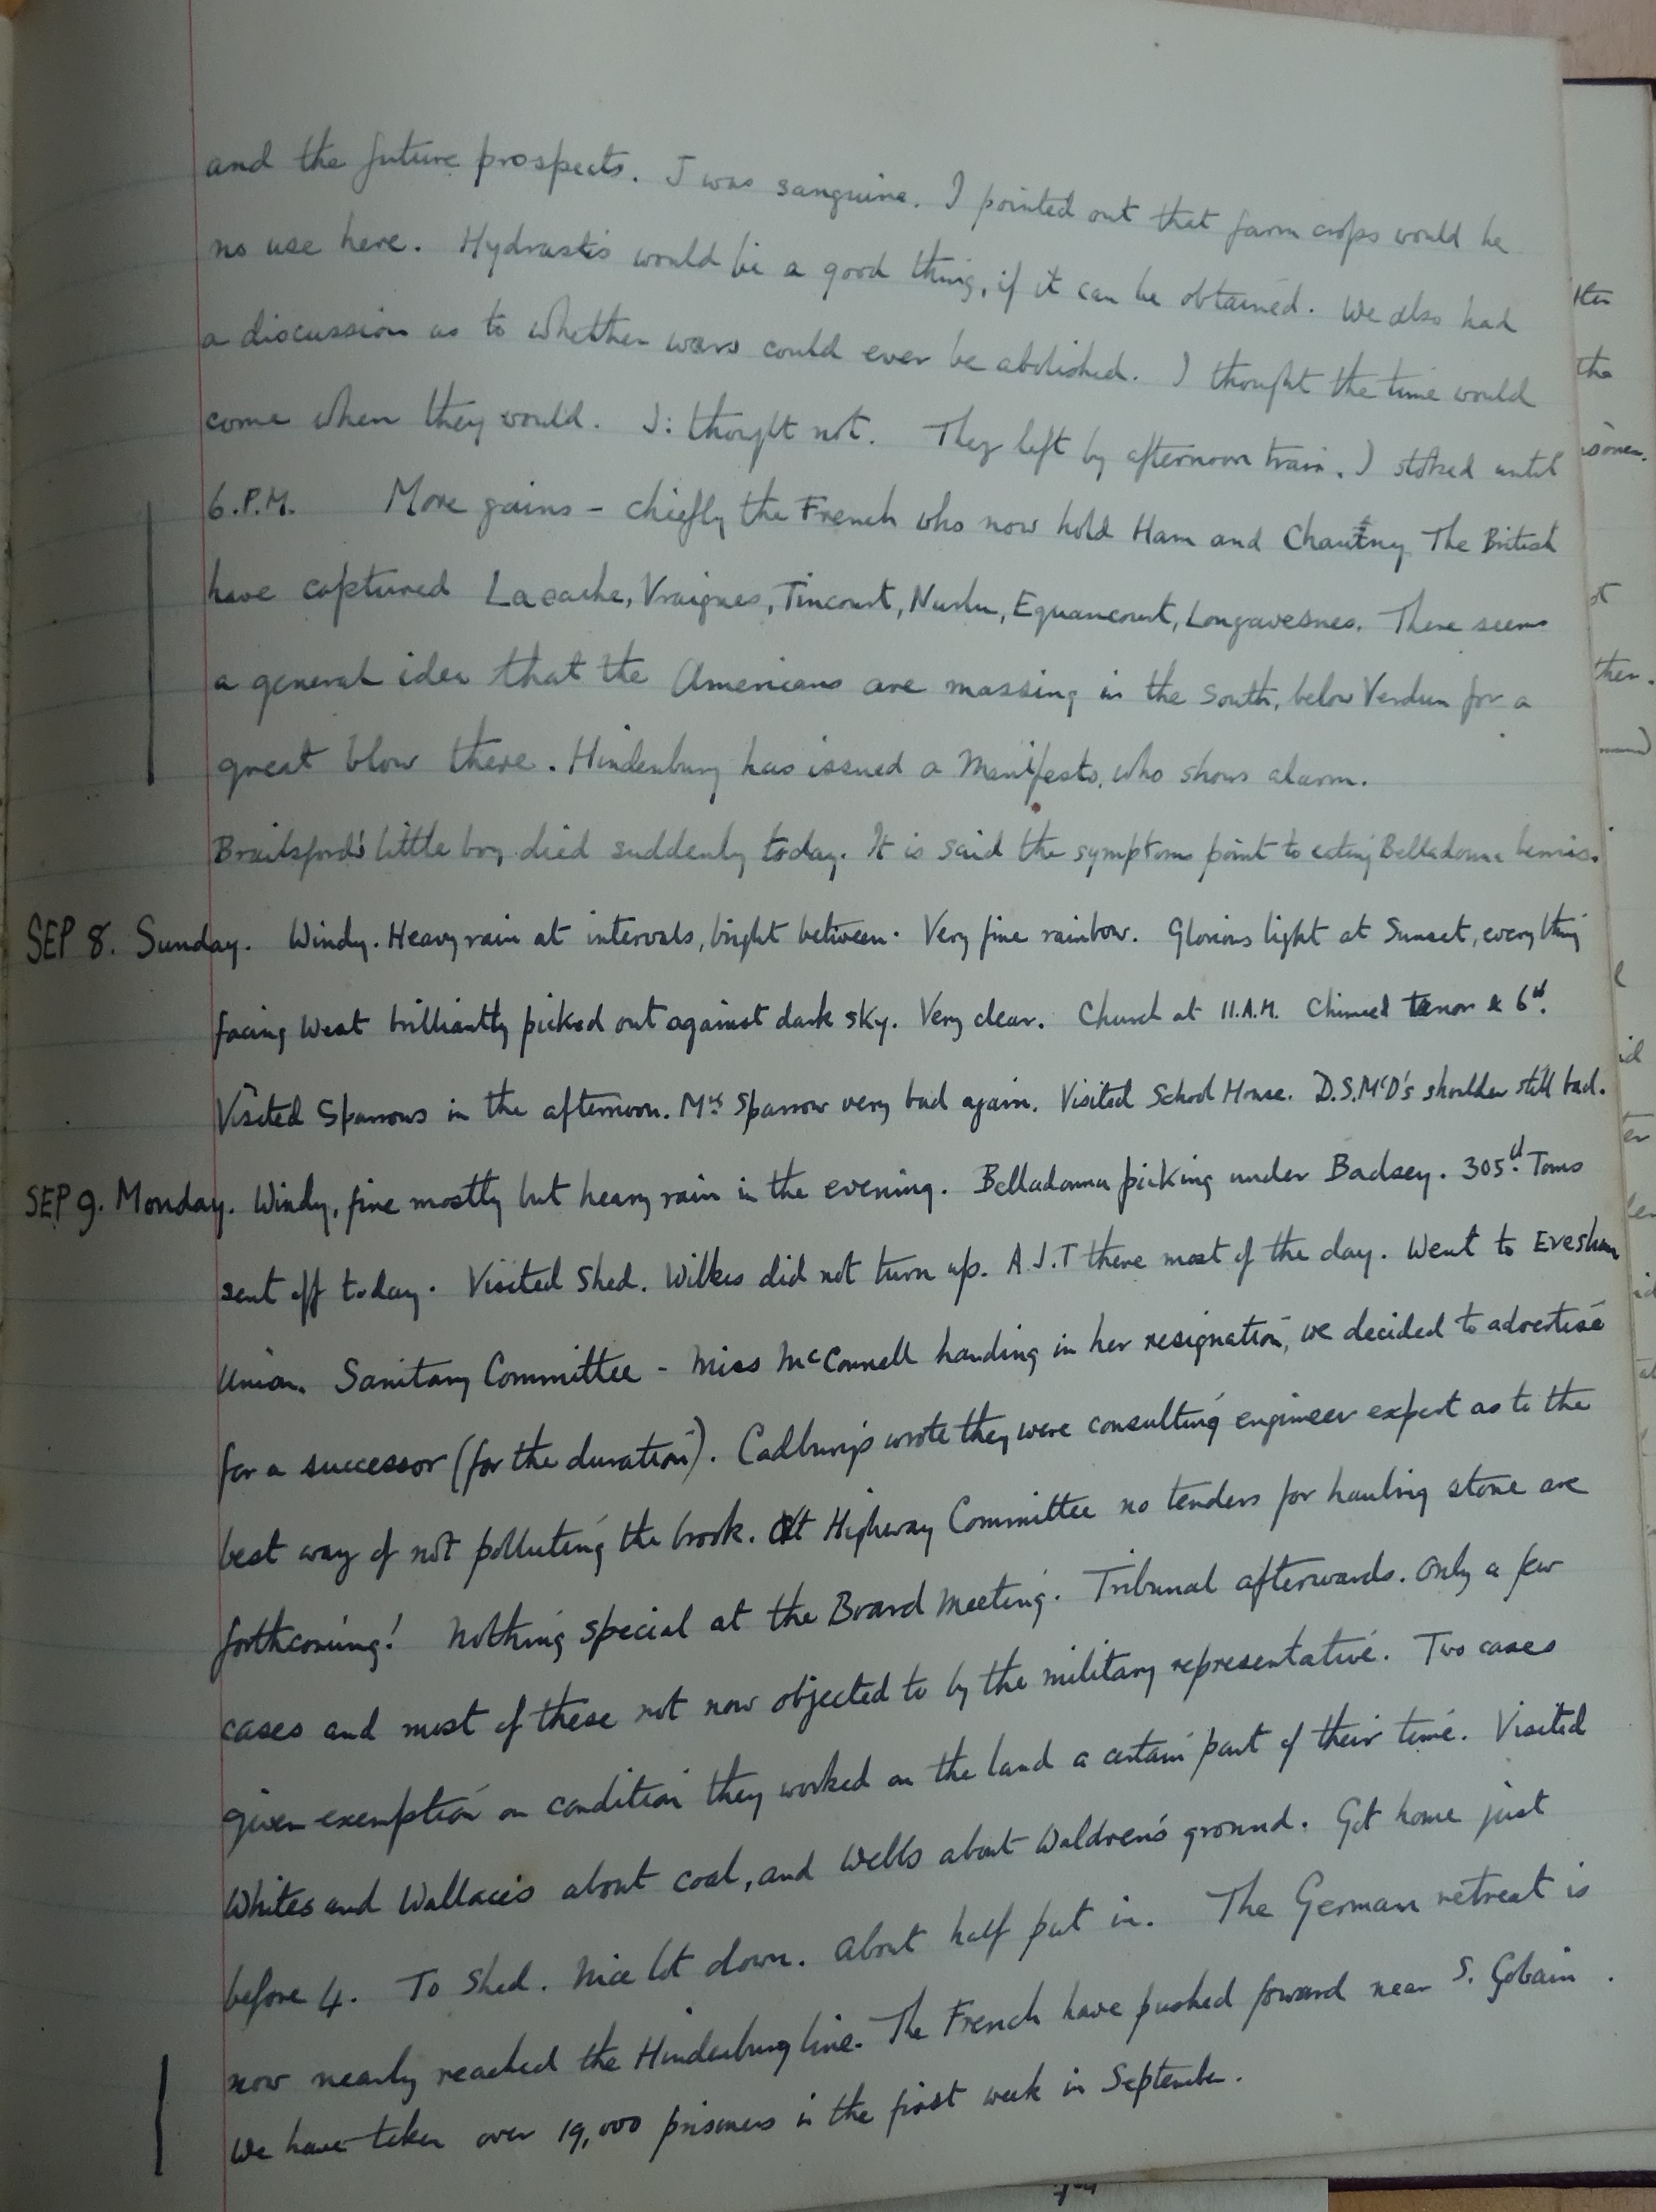 and the future prospects. I was sanguine. I pointed out that farm crops would be
no use here. Hydrastis would be a good thing, if it can be obtained. We also had
a discussion as to whether wars could ever be abolished. I thought the time would
come when they would. J: thought not. They left by afternoon train. I stoked until
6.P.M. More gains - chiefly the French who now hold Ham and The British
have captured Vraignes, Tincourt, Nurlu, Equancourt, Longavesnes. There seems
a general idea that the Americans are massing in the South, below Verdun for a
great blow there. Hindenburg has issued a Manifesto, who shows alarm.
Brailsford's little boy died suddenly today. It is said the symptoms point to eating Belladonna berries.
SEP 8. Sunday. Windy. Heavy rain at intervals, bright between. Very fine rainbow. Glorious light at Sunset, everything
facing West brilliantly picked out against dark sky. Very clear. Church at 11.A.M. Chimed tenor & 6th.
Visited Sparrows in the afternoon. Mrs Sparrow very bad again. Visited School House. D.S.McD's shoulder still bad.
SEP 9. Monday. Windy, fine mostly but heavy rain in the evening. Belladonna picking under Badsey. 305th Tons
sent off today. Visited Shed. Wilkes did not turn up. A.J.T there most of the day. Went to Evesham
Union. Sanitary Committee - Miss McConnell handing in her resignation, we decided to advertise
for a successor (for the duration). Cadburys wrote they were consulting engineer expert as to the
best way of not polluting the brook. At Highway Committee no tenders for hauling stone are
forthcoming! Nothing special at the Board Meeting. Tribunal afterwards. Only a few
cases and most of these not now objected to by the military representative. Two cases
given exemption on condition they worked on the land a certain part of their time. Visited
Whites and Wallace's about coal, and Webbs about Waldren's ground. Got home just
before 4. To Shed. Nice lot down. About half put in. The German retreat is
now nearly reached the Hindenburg line. The French have pushed forward near S. Gobain.
We have taken over 19,000 prisoners in the first week in September.